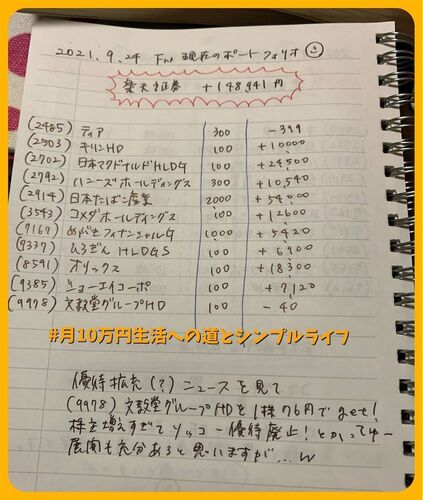 2021.9.24 Fri 現在のポートフォリオ
楽天証券 +148,941円
(2485) ティア 300 -399
(2503) キリンHD 100 +10000
(2702) 日本マクドナルドHLDG 100 +24,500
(2792) ハニーズホールディングス 300 +10,540
(2914) 日本たばこ産業 2000 +54,000
(3543) コメダホールディングス 100 +12600
(7167) めぶきフィナンシャルG 1,000 +5,420
(7337) ひろぎんHLDGS 100 +6,900
(8591) オリックス 100 +18,300
(9385) ショーエイコーポ 100 +7,120
(9978) 文教堂グループHD 100 -40
#月10万円生活への道とシンプルライフ
優待拡充(?)ニュースを見て
(9978) 文教堂グループHDを1株76円でget!
株主増えすぎてソッコー優待廃止!とかってゆー
展開も充分あると思いますが…w